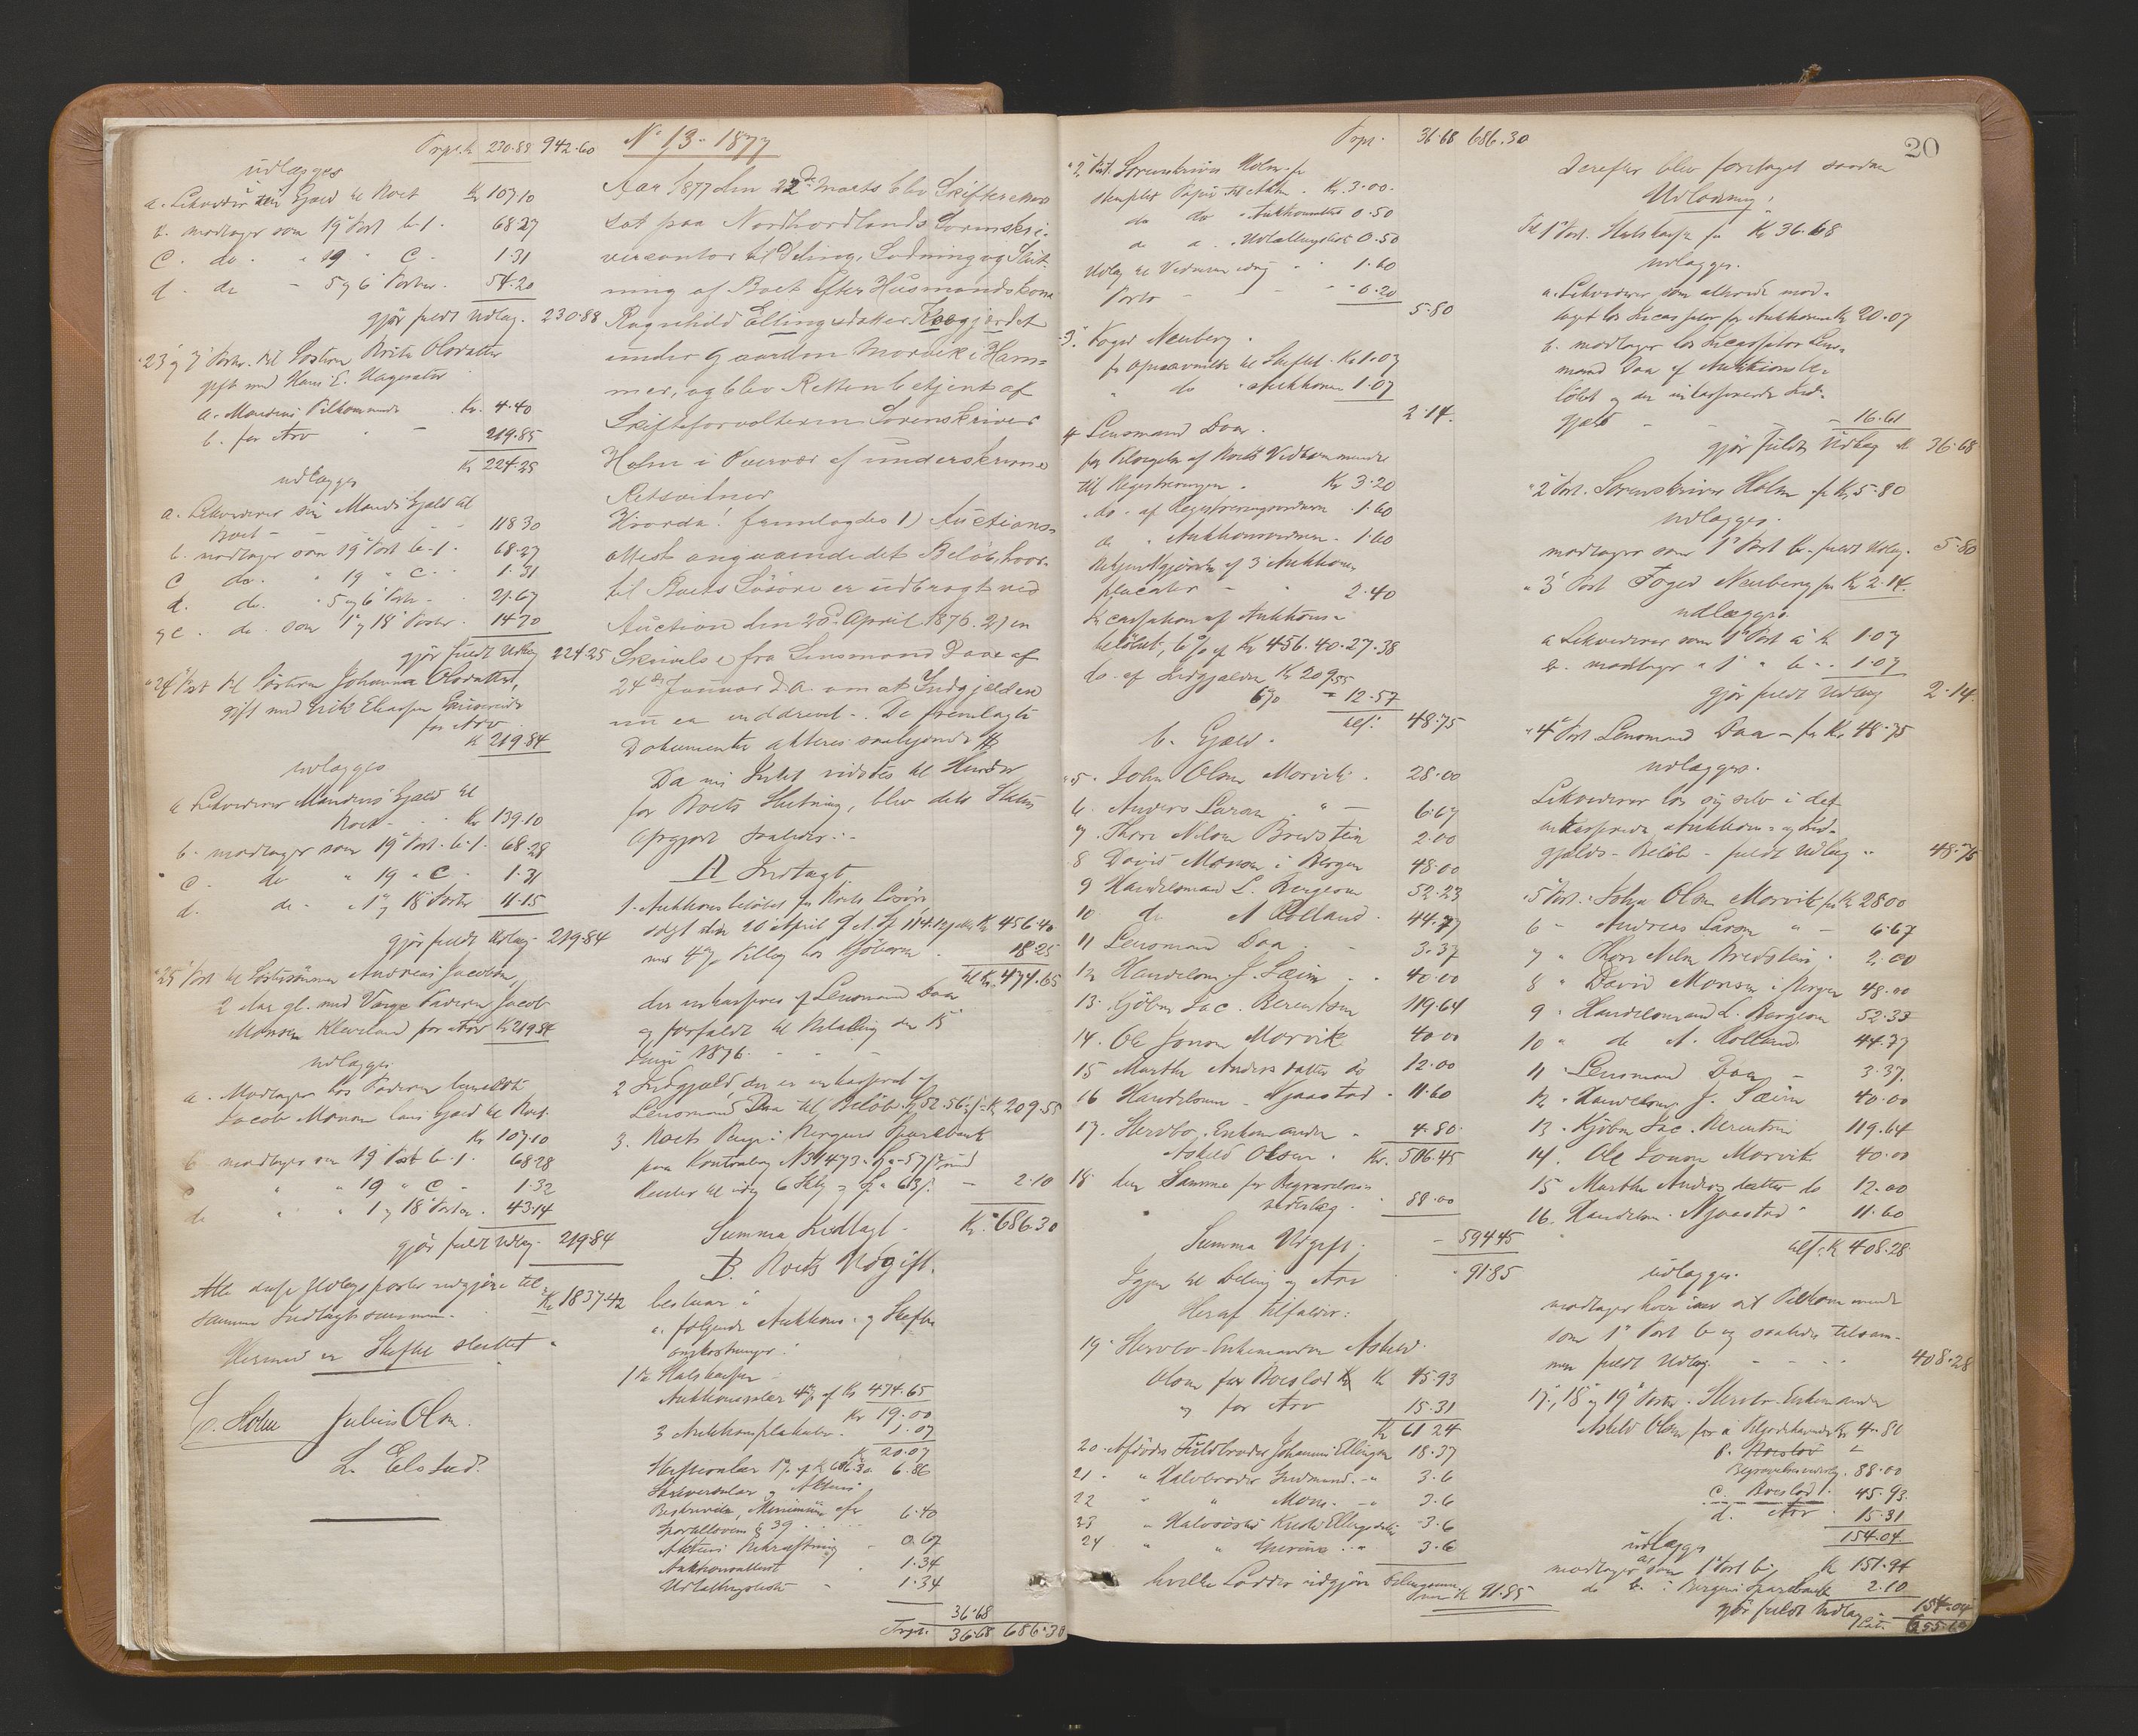 Trpt. 230.88 942.60
udlægges
a. Likvidér sin Gjæld til Boet Kr 107.10
b. modtager som 19 Post b.1. 68.27
c. do. " 19 " c. 1.31
d. do - 5 og 6 Poster. 54.20
gjør fuldt Udlæg. 230.88
23 og 7 Poster. til Søsteren Brita Olsdatter
gift med Hans E.
a. Mandens Tilkommende Kr. 4.40
b. for Arv - 219.85
Kr 224.25
udlægges
a. Likviderer sin Mands Gjæld til
Boet - 118.30
b. modtager som 19 Post b.1. 68.27
c do. " 19 " c. 1.31
d. do. " 5 og 6 Poster - 21.67
og e. do. som 1 og 18 Poster. 14.70
gjør fuldt Udlæg 224.25
24 Post til Søsteren Johanna Olsdatter,
gift med Erik Eliassen
for Arv
Kr 219.84
udlægges
a Likviderer Mandens Gjæld til
Boet - Kr 139.10
b. modtager som 19 Post. b.1. 68.28
c. do " 19 " c. 1.31
d. do - " 1 og 18 Poster 11.15
gjør fuldt Udlæg - 219.84
25 Post til Søstersønnen Andreas Jacobsen,
2 Aar gl. med Værge Faderen Jacob
Monsen Kleveland for Arv Kr 219.84
udlægges
a. Modtager hos Faderen bemeldte
Jacob Monsen hans Gjæld til Boet.
Kr 107.10
b modtager som 19 Post b.1. 68.28
c " " 19 " c - 1.32
d " " 1 og 18 Poster. 43.14
gjør fuldt Udlæg - 219.84
Alle disse Udlægsposter udgjøre til-
sammen Indtægtssummen. Kr 1837.42
Hermed er Skiftet sluttet.
C. Holm Julius Olsen.
L. Elstad.
No 13 - 1877
Aar 1877 den 22de Marts blev Skifteret
sat paa Nordhordlands Sorenskri-
vercontor til Deling, Lodning og Slut-
ning af Boet efter Husmandskone
Ragnhild Ellingsdatter Kroggjerdet
under Gaarden Morvik i Ham-
mer, og blev Retten betjent af
Skifteforvalteren Sorenskriver
Holm i Overvær af underskrevne
Retsvidner
Hvorda! fremlagdes 1) Auctions-
attest angaaende det Beløb, hvor-
til Boets Løsøre er udbragt ved
Auction den 20de April 1876. 2) en
Skrivelse fra Lensmand Daae af
24de Januar d.A. om at Indgjælden
nu er inddrevet. De fremlagte
Dokumenter akteres saalydende
Da nu Intet vidstes til Hinder
for Boets Slutning, blev dets Status
opgjort saaledes:
A Indtægt
1. Auktionsbeløbet for Boets Løsøre
solgt den 20 April f.A. Kr 456.40
med 4% Tillæg hos Kjøberne 18.25
tils Kr. 474.65
der indkasseres af Lensmand Daa
og forfaldt til Betaling den 15
Juni 1876.
2 Indgjæld, der er inkasseret af
Lensmand Daa til Beløb Kr 209.55
3. Boets Penge i Bergens Sparebank
paa Kontrabog
Renter til idag - 2.10
Summa Indtægt - Kr. 686.30
B. Boets Udgift.
bestaar i
a. følgende Auktions- og Skifte
omkostninger:
1. Statskassen
Auktionssalær 4% af Kr 474.65
Kr 19.00
3 Auktionsplakater. 1.07
Kr 20.07
Skiftesalær 1% af Kr 686.30 6.86
Skriversalær og Aktens
Beskrivelse, Minimum efter
Sportelloven § 39 6.40
Aktens Bekræftning - 0.67
Auktionsattest 1.34
Udlægslister - 1.34
36.68
Trpt. 36.68 686.30
Trpt. 36.68 686.30
2 Post. Sorenskriver Holm for
stemplet Papir til Akten. Kr. 3.00.
do do " Auktionsattest 0.50
do do. " 0.50
Udlæg til Vidnerne idag - 1.60
Porto - 0.20
5.80
3. Foged Neuberg.
for Kr 1.07
do " Auktionen 1.07
2.14.
4 Lensmand Daa.
for Tilsigelse af Boets Vedkommende
til Registreringen. Kr 3.20
do. af Registreringsvidnerne 1.60
do " Auktionsvidnerne - 1.60
Bekjendtgjørelse af 3 Auktions
plakater - 2.40
Incassation af Auktions-
beløbet, 6% af Kr 456.40. 27.38
do. af Indgjælden Kr 209.55
6% - 12.57
tils: 48.75
b. Gjæld.
5. John Olsen Morvik. 28.00
6. Anders Larsen " - 6.67
7. Thore Nilsen Bredstein 2.00
8 David Monsen i Bergen 48.00
9 Handelsmand L. Bergesen 52.23
10 do A Rolland. 44.77
11 Lensmand Daa. - 3.37
12 Handelsm. J. Sæim - 40.00
13. Kjøbm Jac. Berentsen 119.64
14. Ole Jonsen Morvik 40.00
15 Marthe Andersdatter do 12.00
16 Handelsm. Njaastad - 11.60
17. Stervbo Enkemanden - 4.80.
Askild Olsen. Kr. 506.45
18 den Samme for Begravelses-
vederlag. 88.00
Summa Udgift. - 594.45
Igjen til Deling og Arv 91.85
Heraf tilfalder:
19 Stervbo-Enkemanden Askild
Olsen for Boeslod Kr 45.93
og for Arv 15.31
Kr 61.24
20. Afdødes Fuldbroder Johannes Ellingsen 18.37
21. " Halvbroder Gudmund - " 3.6
22 " " Mons. - " 3.6
23 " Halvsøster Kristi Ellingsdatter 3.6
24 " " - " 3.6
hvilke Lodder udgjøre Delingssum-
men Kr 91.85
20
Derefter blev foretaget saadan
Udlodning:
Til 1 Post. Statskassen for Kr 36.68
udlægges.
a. Likviderer som allerede mod-
taget hos Incassator for Auktionen Kr 20.07
b. modtager hos Incassator Lens-
mand Daa af Auktionsbe-
løbet og den inkasserede Ind-
gjæld - - - 16.61
gjør fuldt Udlæg Kr 36.68
2 Post. Sorenskriver Holm for Kr 5.80
udlægges.
modtager som 1 Post b. fuldt Udlæg. 5.80
3 Post Foged Neuberg for Kr 2.14.
udlægges.
a Likviderer som 1 Post a Kr 1.07
b. modtager " 1 " b. - 1.07
gjør fuldt Udlæg 2.14.
4 Post Lensmand Daa - for Kr. 48.75
udlægges.
Likviderer hos sig selv i det
inkasserede Auktions- og Ind-
gjælds-Beløb - fuldt Udlæg " 48.75
5 Post. John Olsen Morvik for Kr 28.00
6 - Andreas Larsen " - 6.67
7 " Thore Nilsen Bredstein. 2.00
8 " David Monsen i Bergen 48.00
9 " Handelsmand L. Bergesen 52.23
10 " do A. Rolland. 44.77
11 " Lensmand Daa - 3.37.
12 " Handelsm. J. Sæim 40.00
13. Kjøbm Jac. Berentsen 119.64
14. Ole Jonsen Morvik. 40.00
15 Marthe Andersdatter do 12.00
16. Handelsm. Njaastad " 11.60
tils: Kr 408.28
udlægges.
modtager hver især sit Tilkommende
som 1 Post b og saaledes tilsam-
men fuldt Udlæg. - - 408.28
17, 18 og 19 Poster. Stervbo-Enkemanden
Askild Olsen for a Tilgodehavende Kr 4.80
b. Boeslod
Begravelsesvederlag. 88.00
c. Boeslod. 45.93.
d. Arv 15.31
154.04.
udlægges
modtager som 1 Post b. Kr 151.94
do b. i Bergens Sparebank 2.10
gjør fuldt Udlæg 154.04
Lat. 655.69